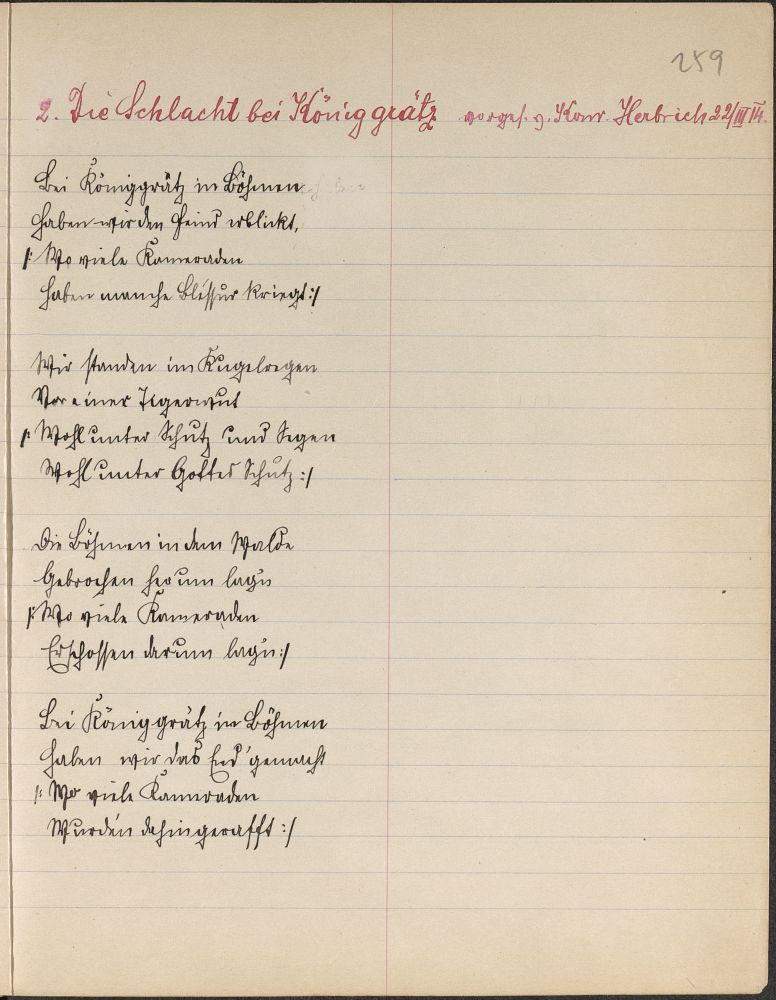 259
2. Die Schlacht bei Königgrätz vorges. v. Konr. Herbrich 22/III 14.
Bei Königgrätz in Böhmen
Haben wir den Feind erblickt,
/: Wo viele Kameraden
Haben manche Blessur kriegt :/
Wir standen im Kugelregen
Vor einer Tigerwut
/: Wohl unter Schutz und Segen
Wohl unter Gottes Schutz :/
Die Böhmen in dem Walde
Gebrochen herum lag'n
/: Wo viele Kameraden
Erschossen darum lag'n :/
Bei Königgrätz in Böhmen
Haben wir das End' gemacht
/: Wo viele Kameraden
Wurden dahingerafft :/